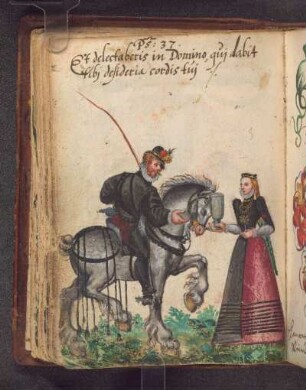 Ps: 37.
Et delectaberis in Domino, qui dabit
tibi desideria cordis tui